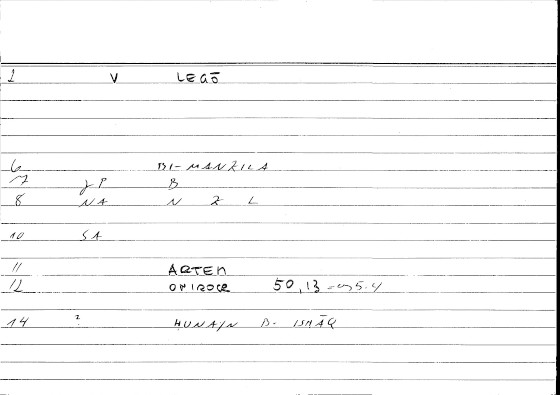 1 V LEGŌ
6 BI-MANZILA
7 JP B
8 NA N Z L
10 SA
11 ARTEM
12 ONIROCR 50,13
14 ? HUNAIN B- ISHĀQ